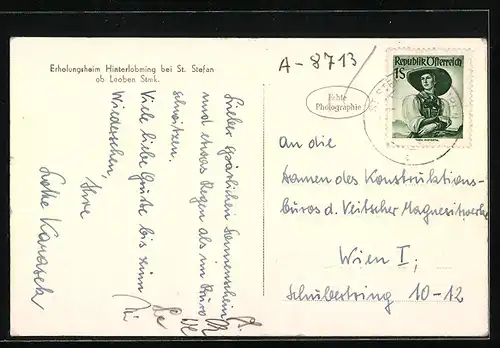 Erholungsheim Hinterlobming bei St. Stefan
ob Leoben Stmk.
A-8713
Echte
Photographie
Republik Österreich
1 S
Lieber spärlichen Sonnenschein
und etwas Regen als im Büro
schwitzen.
Viele liebe Grüße bis zum
Wiedersehen,
Ihre
Lotte Karasek
An die
Damen des Konstruktions-
büros d. Veitscher Magnesitwerke
Wien I;
Schubertring 10-12